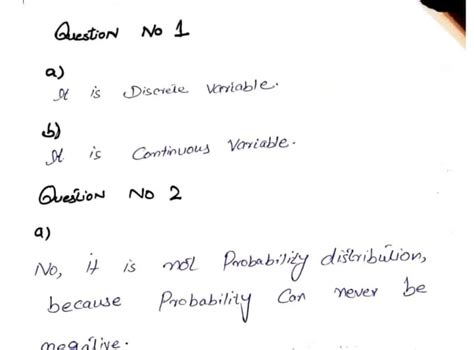 Question No 1
a)
It is Discrete Variable.
b)
It is Continuous Variable.
Question No 2
a)
No, it is not Probability distribution,
because Probability Can never be
negative.